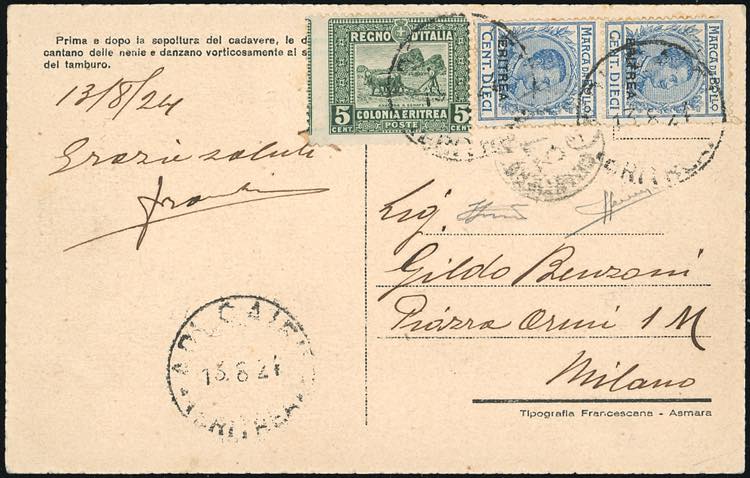 Prima e dopo la sepoltura del cadavere, le d
cantano delle nenie e danzano vorticosamente al s
del tamburo.
13/8/24
Grazie saluti
REGNO D'ITALIA
5 CENT.
5 CENT.
COLONIA ERITREA
POSTE
MARCA DA BOLLO
CENT. DIECI
ERITREA
MARCA DA BOLLO
CENT. DIECI
ERITREA
ERITREA
Sig.
Gildo Benzoni
Piazza Orsini 1 M
Milano
ADI CAIEH
13.8.24
ERITREA
Tipografia Francescana - Asmara